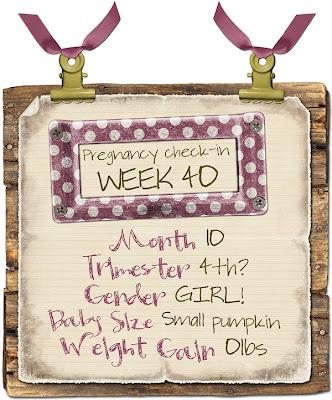 Pregnancy check-in
WEEK 40
Month 10
Trimester 4th?
Gender GIRL!
Baby Size Small pumpkin
Weight Gain 0lbs